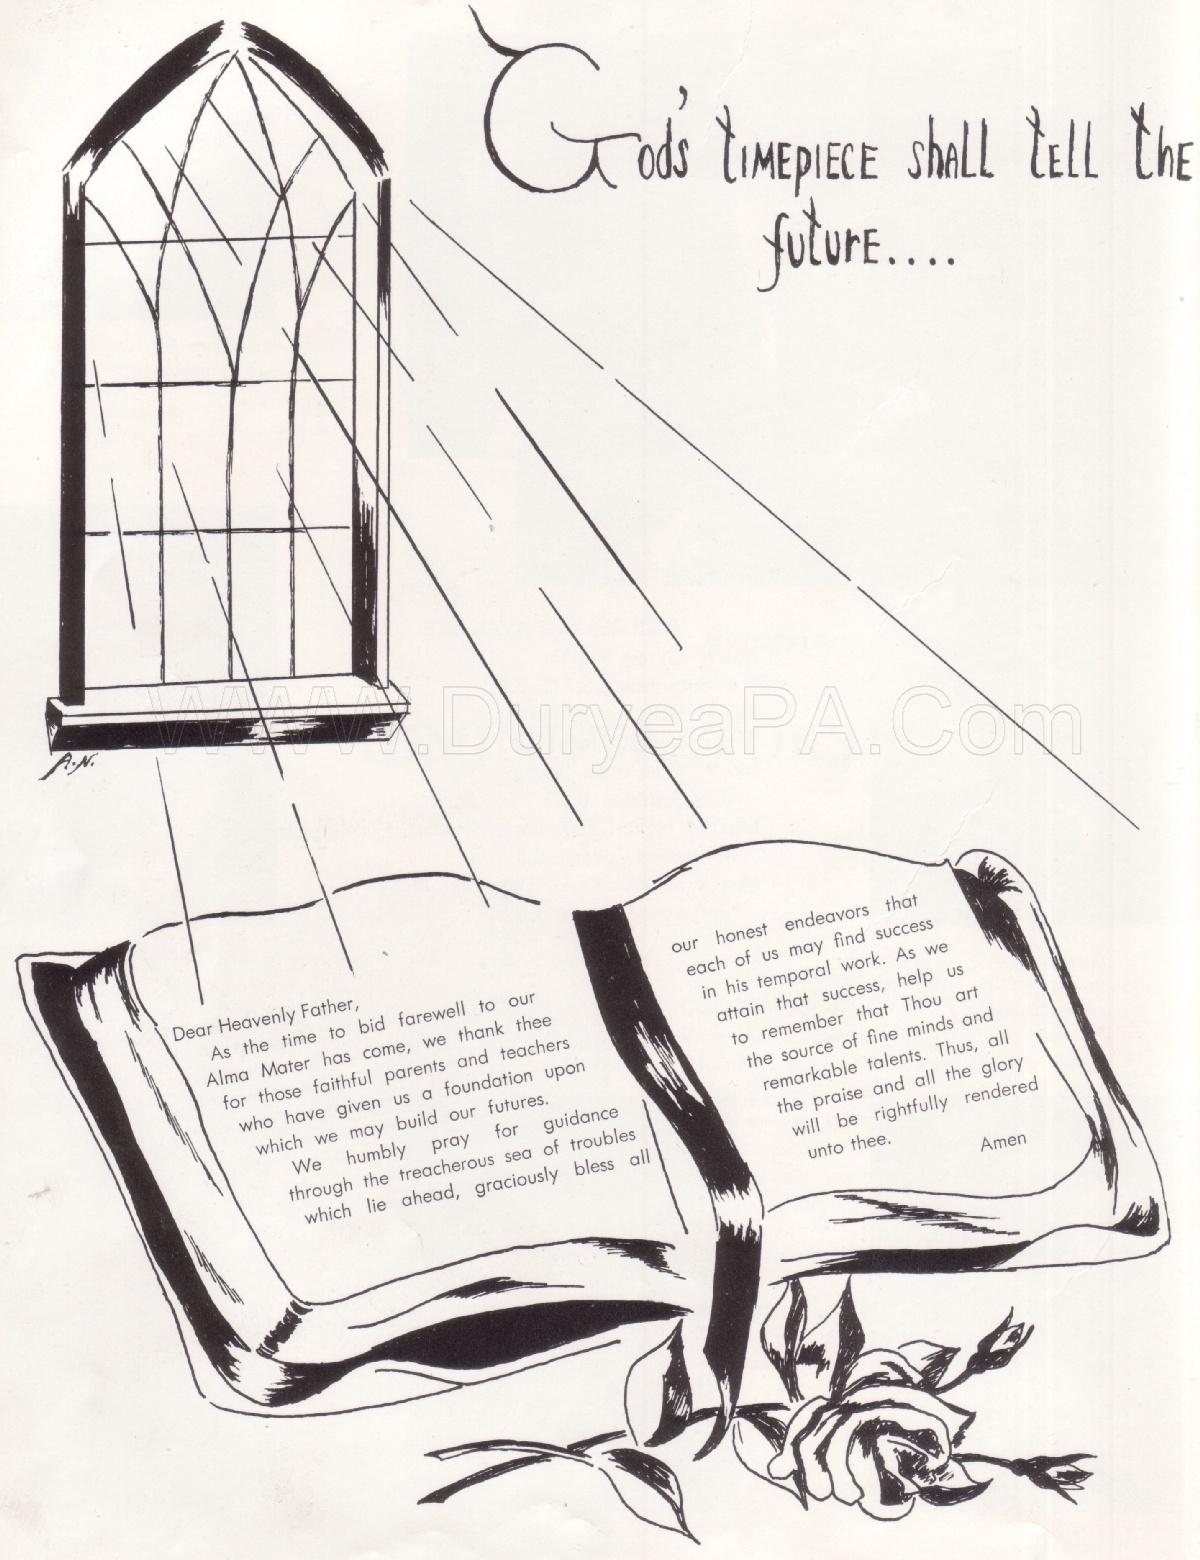 God's timepiece shall tell the
future....
A.N.
www.DuryeaPA.Com
Dear Heavenly Father,
As the time to bid farewell to our
Alma Mater has come, we thank thee
for those faithful parents and teachers
who have given us a foundation upon
which we may build our futures.
We humbly pray for guidance
through the treacherous sea of troubles
which lie ahead, graciously bless all
our honest endeavors that
each of us may find success
in his temporal work. As we
attain that success, help us
to remember that Thou art
the source of fine minds and
remarkable talents. Thus, all
the praise and all the glory
will be rightfully rendered
unto thee.
Amen